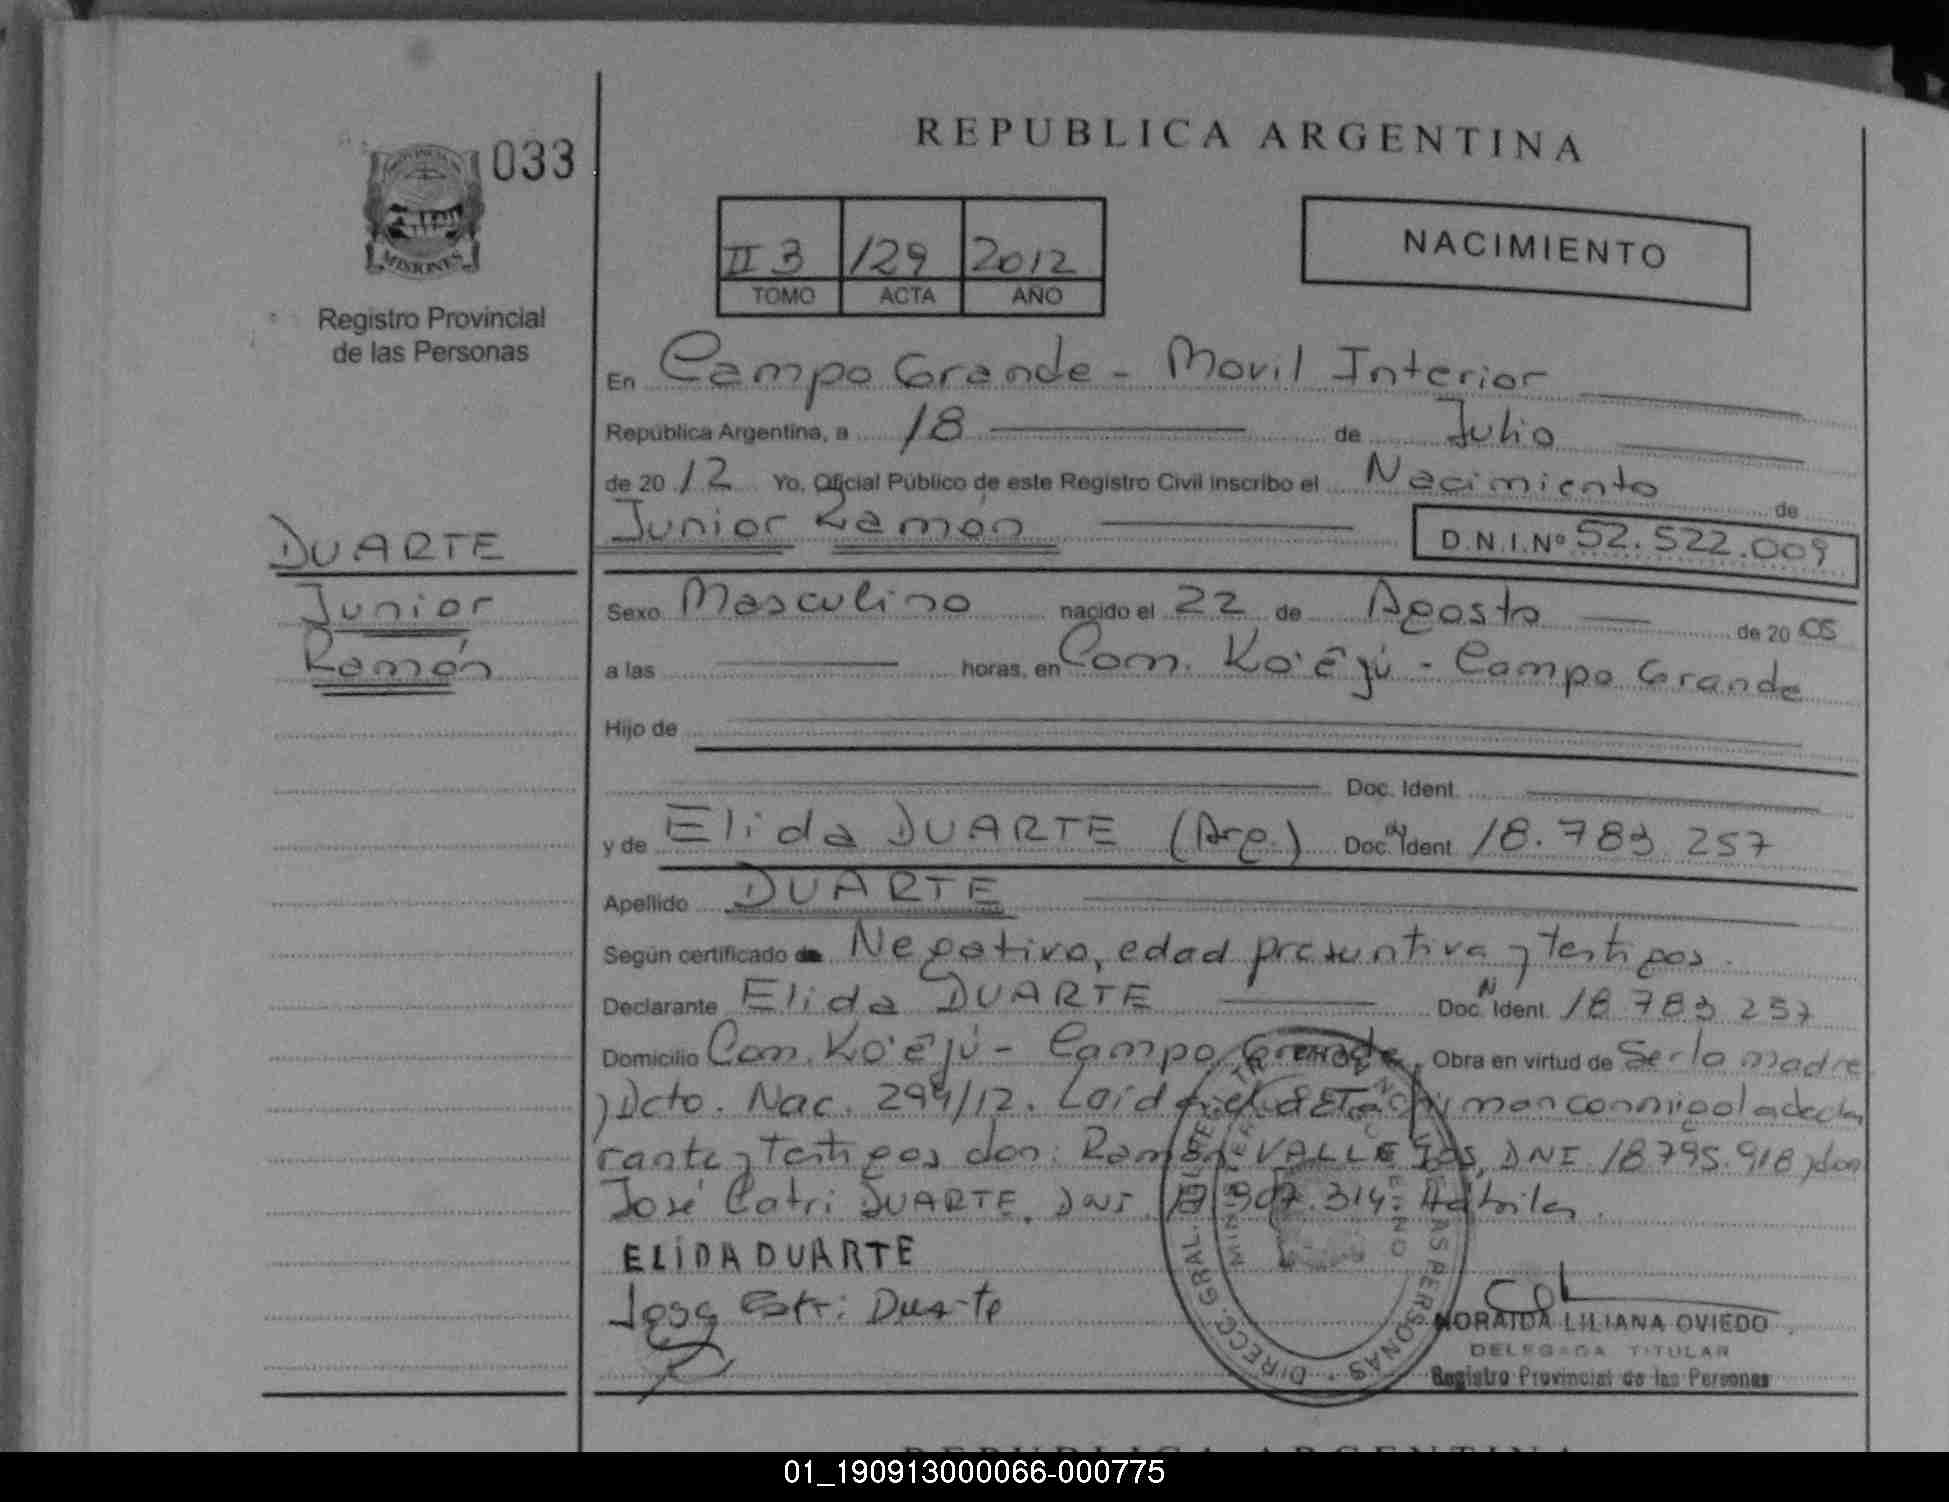 033
PROVINCIA
MISIONES
Registro Provincial
de las Personas
DUARTE
Junior
Ramón
REPUBLICA ARGENTINA
II 3 129 2012
TOMO ACTA AÑO
NACIMIENTO
En Campo Grande - Movil Interior
República Argentina, a 18 de Julio
de 20 12 Yo, Oficial Público de este Registro Civil inscribo el Nacimiento de
Junior Ramón D.N.I.Nº 52.522.009
Sexo Masculino nacido el 22 de Agosto de 20 05
a las horas, en Com. Ko'ẽjú - Campo Grande
Hijo de
Doc. Ident.
y de Elida DUARTE (Arg.) Doc. Ident 18.783.257
Apellido DUARTE
Según certificado de Negativo, edad presuntiva y testigos.
Declarante Elida DUARTE Doc. Ident. 18 783 257
Domicilio Com. Ko'ẽjú - Campo Grande Obra en virtud de Ser la madre
y Dcto. Nac. 294/12. Leída el Acta firman conmigo la decla
rante y testigos don: Ramón VALLEJOS, DNI 18.795.918 y don
José Catri DUARTE. DNI. 907.314. Adhiles.
ELIDA DUARTE
Jose Catri Duarte
NORAIDA LILIANA OVIEDO
DELEGADA TITULAR
Registro Provincial de las Personas
DIRECC. GRAL. PERSONAS
REPUBLICA ARGENTINA
01_190913000066-000775